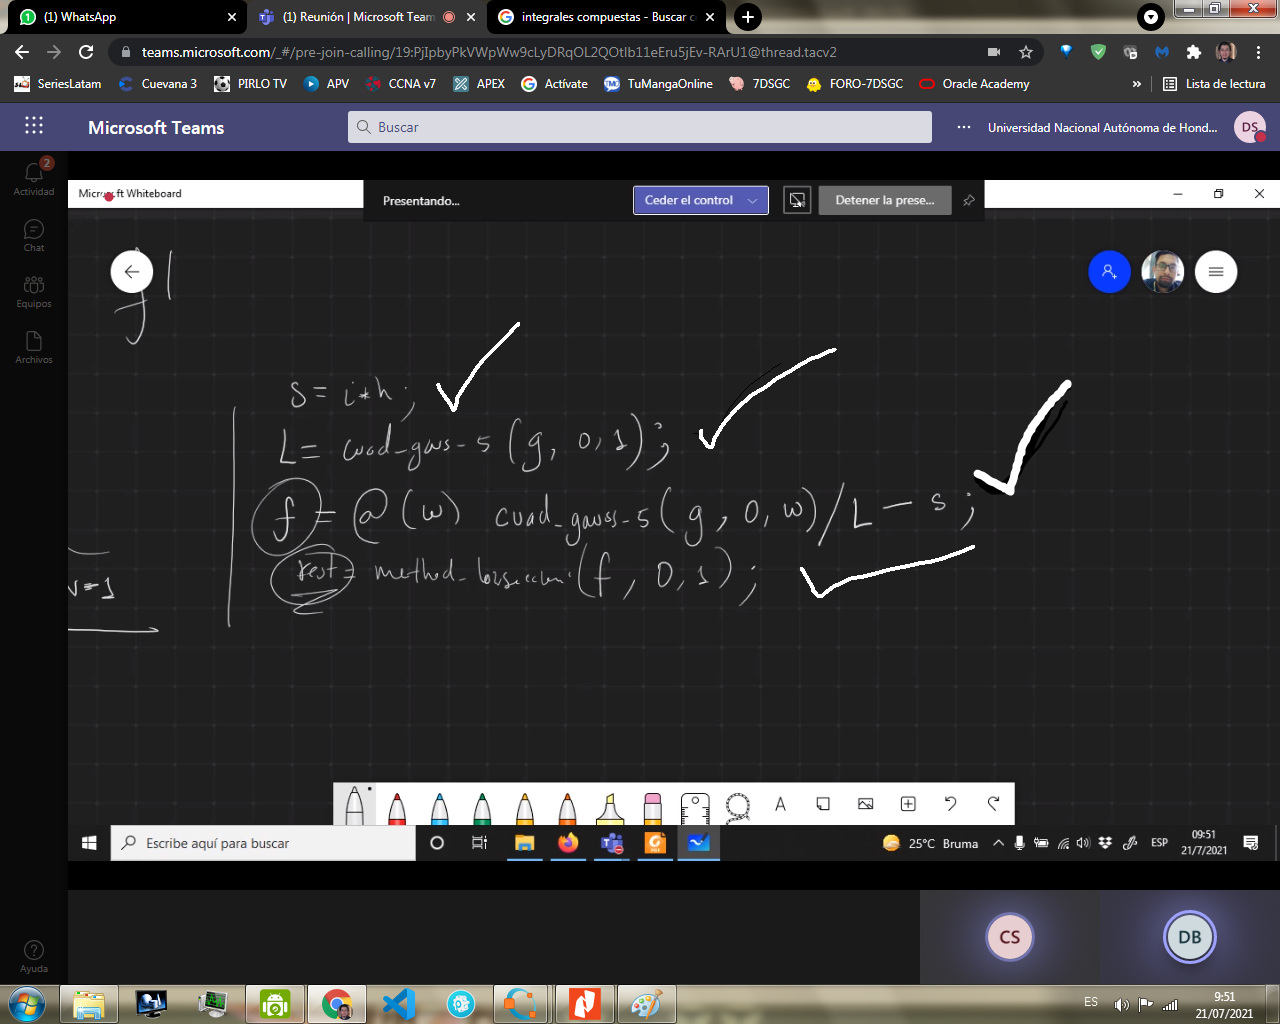 (1) WhatsApp
(1) Reunión | Microsoft Team
integrales compuestas - Buscar c
teams.microsoft.com/_#/pre-join-calling/19:PjIpbyPkVWpWw9cLyDRqOL2QOtIb11eEru5jEv-RArU1@thread.tacv2
SeriesLatam
Cuevana 3
PIRLO TV
APV
CCNA v7
APEX
Actívate
TuMangaOnline
7DSGC
FORO-7DSGC
Oracle Academy
»
Lista de lectura
Microsoft Teams
Buscar
Universidad Nacional Autónoma de Hond...
DS
2
Actividad
Chat
Equipos
Archivos
Microsoft Whiteboard
Presentando...
Ceder el control
Detener la prese...
s = i*h;
L = cuad_gaus-5 (g, 0, 1);
f = @ (w) cuad_gauss-5 (g, 0, w)/L - s;
=1
Escribe aquí para buscar
25°C Bruma
ESP
09:51
21/7/2021
CS
DB
Ayuda
ES
9:51
21/07/2021